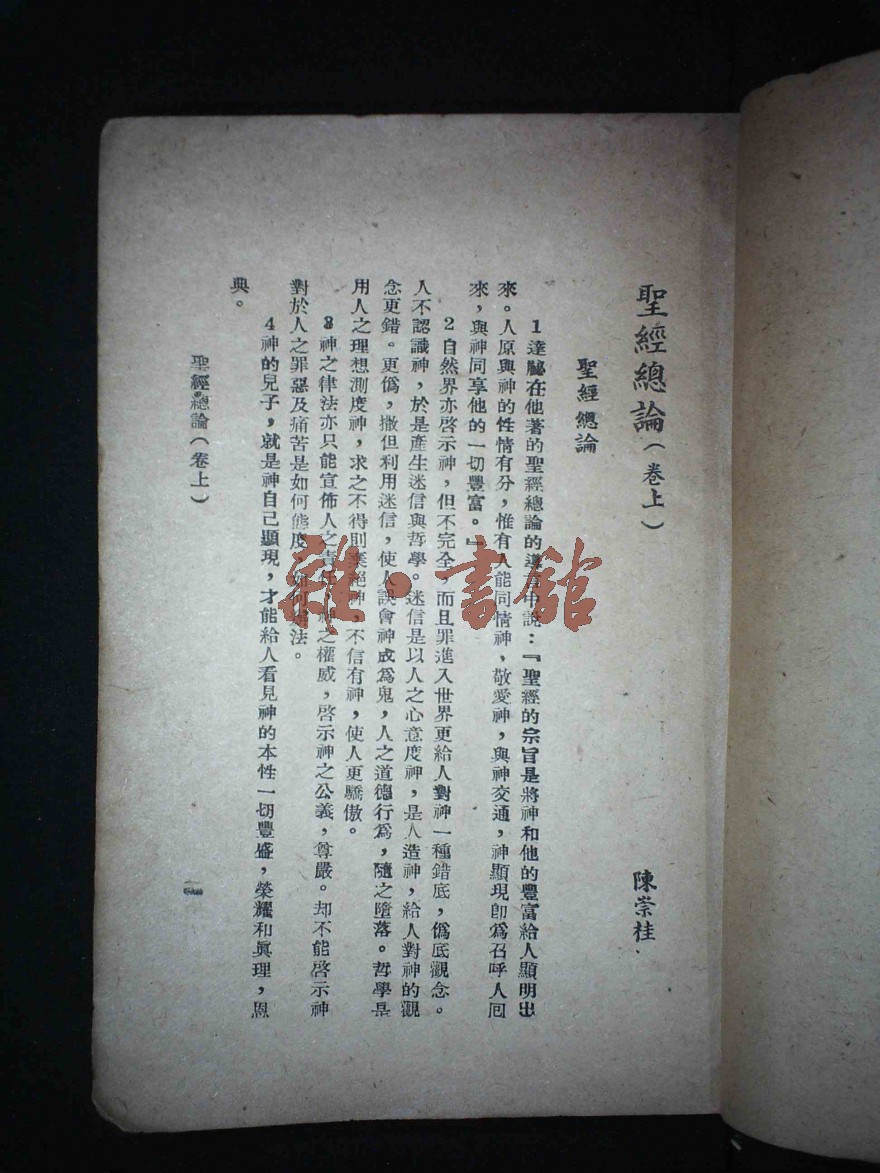 聖經總論（卷上）
陳崇桂
聖經總論
1 達祕在他著的聖經總論的導言中說：『聖經的宗旨是將神和他的豐富給人顯明出
來。人原與神的性情有分，惟有人能同情神，敬愛神，與神交通，神顯現卽為召呼人囘
來，與神同享他的一切豐富。』
2 自然界亦啓示神，但不完全，而且罪進入世界更給人對神一種錯底，僞底觀念。
人不認識神，於是產生迷信與哲學。迷信是以人之心意度神，是人造神，給人對神的觀
念更錯。更僞，撒但利用迷信，使人誤會神成為鬼，人之道德行為，隨之墮落。哲學是
用人之理想測度神，求之不得則棄絕神，不信有神，使人更驕傲。
3 神之律法亦只能宣佈人之責任，神之權威，啓示神之公義，尊嚴。却不能啓示神
對於人之罪惡及痛苦是如何態度，如何法。
4 神的兒子，就是神自己顯現，才能給人看見神的本性一切豐盛，榮耀和眞理，恩
典。
聖經總論（卷上）
一
雜·書館